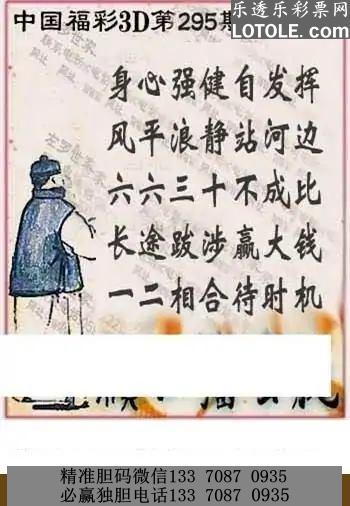 中国福彩3D第295期
乐透乐彩票网
LOTOLE.COM
身心强健自发挥
风平浪静站河边
六六三十不成比
长途跋涉赢大钱
一二相合待时机
精准胆码微信133 7087 0935
必赢独胆电话133 7087 0935